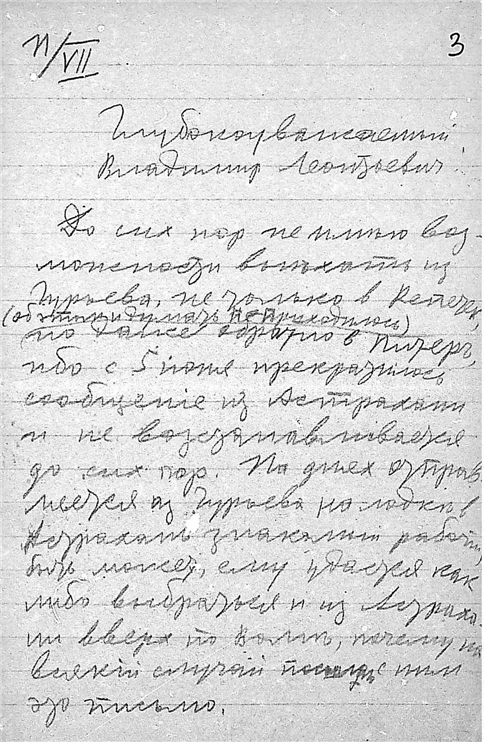 11/VII
3
Глубокоуважаемый
Владимир Леонтьевич!
До сих пор не имею воз-
можности выехать из
Гурьева, не только в
(об этом и думать не приходилось)
но даже обратно в Питер,
ибо с 5 июня прекратилось
сообщение из Астрахани
и не возстанавливается
до сих пор. На днях отправ
ляется из Гурьева на лодке в
Астрахань знакомый
быть может, ему удастся как
либо выбраться и из Астраха-
ни вверх по Волге, почему на
всякий случай с ним
это письмо.